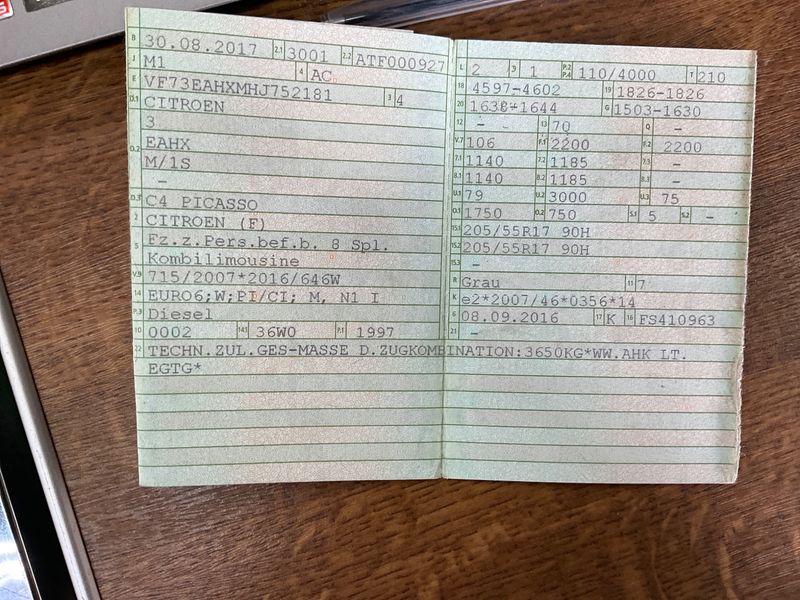 B 30.08.2017 2.1 3001 2.2 ATF000927
J M1 4 AC
E VF73EAHXMHJ752181 3 4
D.1 CITROEN
3
D.2 EAHX
M/1S
-
D.3 C4 PICASSO
2 CITROEN (F)
5 Fz.z.Pers.bef.b. 8 Spl.
Kombilimousine
V.9 715/2007*2016/646W
14 EURO6;W;PI/CI; M, N1 I
P.3 Diesel
10 0002 14.1 36W0 P.1 1997
22 TECHN.ZUL.GES-MASSE D.ZUGKOMBINATION:3650KG*WW.AHK LT.
EGTG*
L 2 9 1 P.2 P.4 110/4000 T 210
18 4597-4602 19 1826-1826
20 1638-1644 G 1503-1630
12 - 13 70 Q -
V.7 106 F.1 2200 F.2 2200
7.1 1140 7.2 1185 7.3 -
8.1 1140 8.2 1185 8.3 -
U.1 79 U.2 3000 U.3 75
O.1 1750 O.2 750 S.1 5 S.2 -
15.1 205/55R17 90H
15.2 205/55R17 90H
15.3 -
R Grau 11 7
K e2*2007/46*0356*14
6 08.09.2016 17 K 16 FS410963
21 -